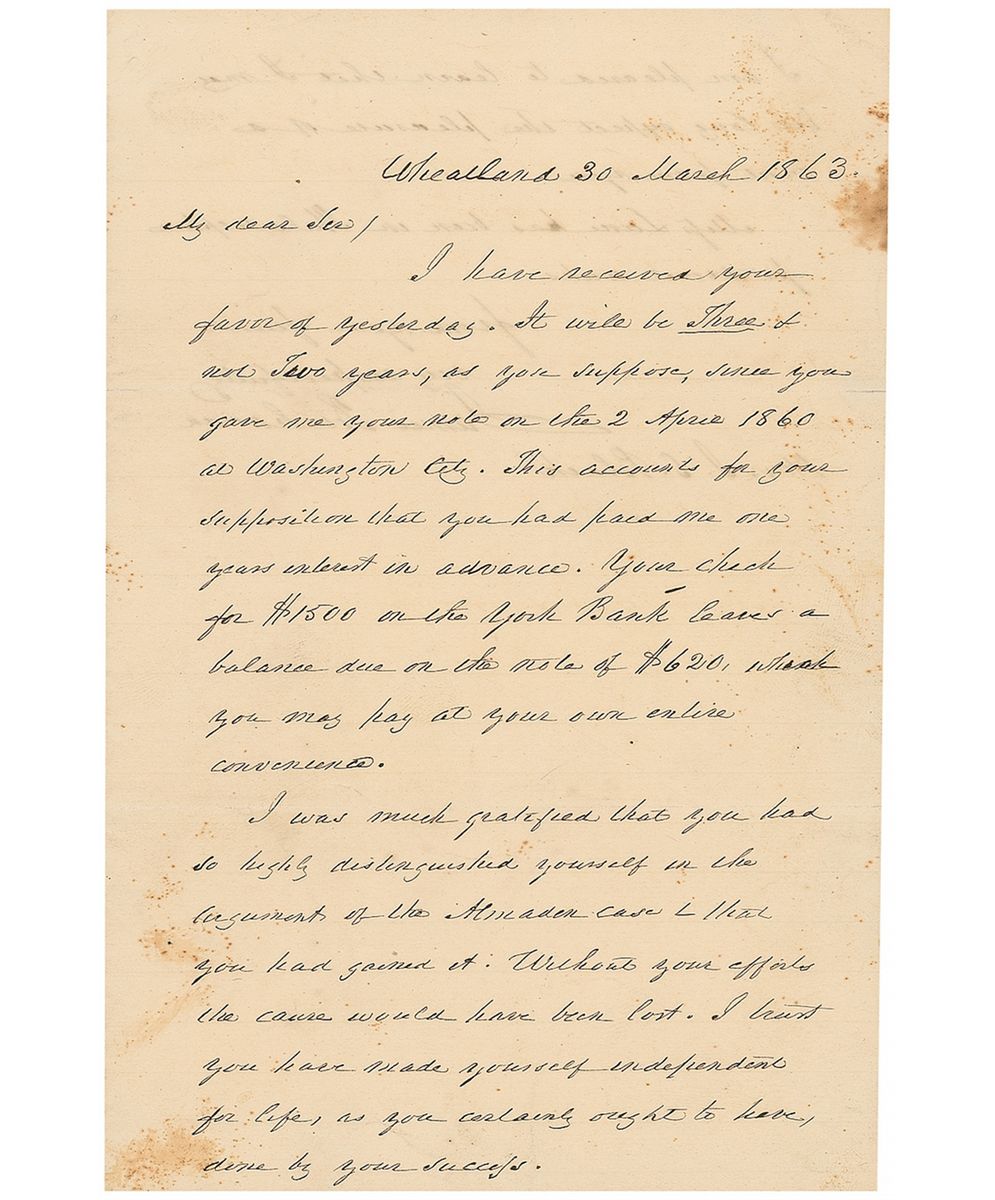 Wheatland 30 March 1863.
My dear Sir/
I have received your
favor of yesterday. It will be Three &
not Two years, as you suppose, since you
gave me your note on the 2 April 1860
at Washington City. This accounts for your
supposition that you had paid me one
years interest in advance. Your check
for $1500 on the York Bank leaves a
balance due on the note of $620, which
you may pay at your own entire
convenience.
I was much gratified that you had
so highly distinguished yourself in the
argument of the Almaden case & that
you had gained it. Without your efforts
the cause would have been lost. I trust
you have made yourself independent
for life, as you certainly ought to have,
done by your success.